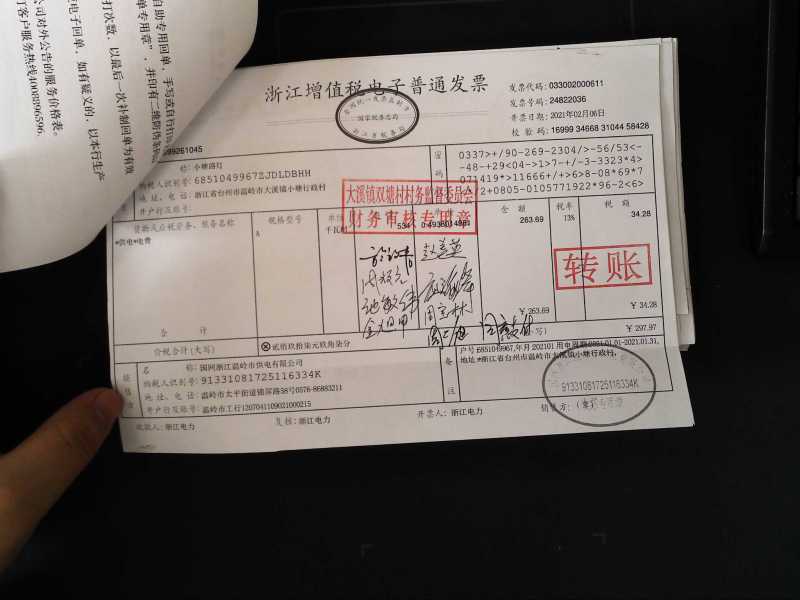 自助专用回单,手写或自行打
单专用章",并印有二维防伪条
打次数,以最后一次补制回单为有效
电子回单,如有疑义的,以本行生产
公司对外公告的服务价格表。
打客户服务热线4008896596.
99261045
浙江增值税电子普通发票
国家税务总局
发票代码:033002000611
发票号码:24822036
开票日期:2021年02月06日
校 验 码:16999 34668 31044 58428
称:小塘路灯
纳税人识别号:6851049967ZJDLDBHH
地 址、电 话:浙江省台州市温岭市大溪镇小塘行政村
开户行及账号:
密
码
0337>+/90-269-2304/>-56/53<-
-48-+29<04->1>7-+/-3-3323*4>
071419*>11666+/+>6>8-08*69*7
/2+0805-0105771922*96-2<6>
大溪镇双塘村村务监督委员会
财务审核专用章
货物或应税劳务、服务名称
规格型号
单位
金 额
税率
税 额
*供电*电费
千瓦时
534
263.69
13%
34.28
转账
合 计
￥263.69
￥34.28
价税合计(大写)
贰佰玖拾柒元玖角柒分
￥297.97
名 称:国网浙江温岭市供电有限公司
纳税人识别号:91331081725116334K
地 址、电 话:温岭市太平街道锦屏路38号0576-86883211
开户行及账号:温岭市工行1207041109021000215
备
注
户号:6851049967,年月:202101 用电周期:2021.01.01-2021.01.31,
地址:浙江省台州市温岭市大溪镇小塘行政村,
91331081725116334K
收款人:浙江电力
复核:浙江电力
开票人:浙江电力
销售方:(章)